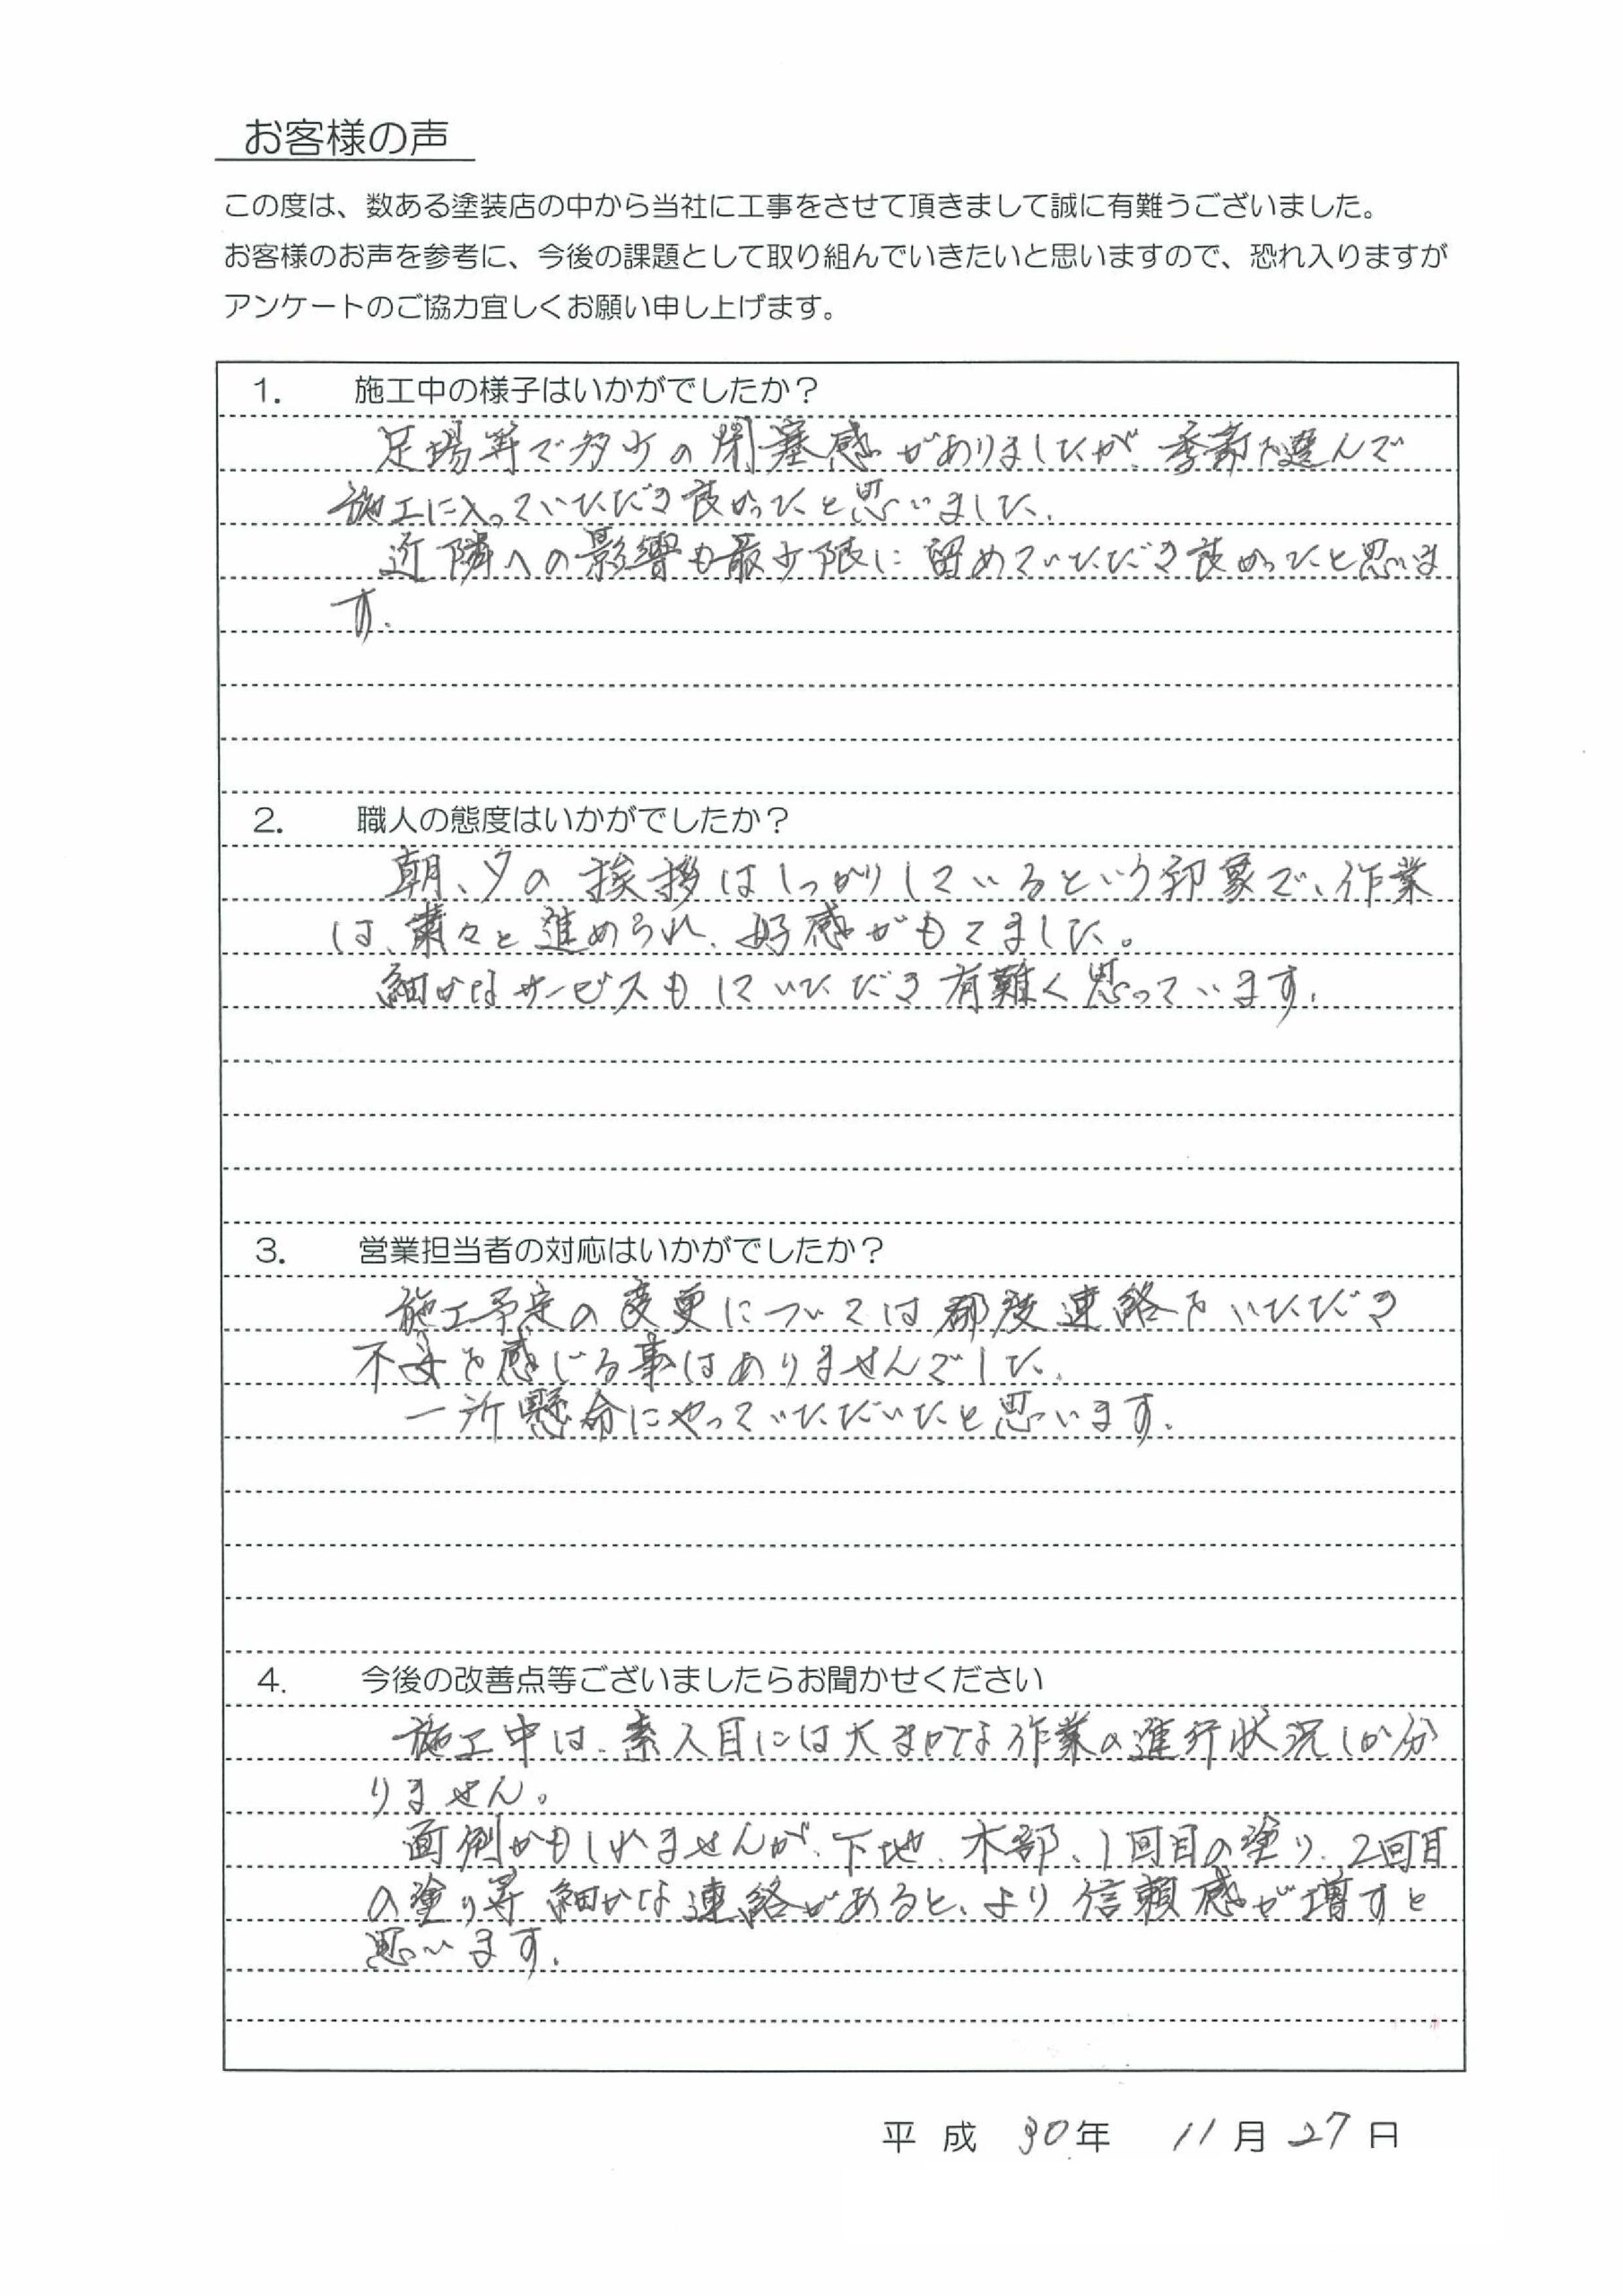 お客様の声
この度は、数ある塗装店の中から当社に工事をさせて頂きまして誠に有難うございました。
お客様のお声を参考に、今後の課題として取り組んでいきたいと思いますので、恐れ入りますが
アンケートのご協力宜しくお願い申し上げます。
1. 施工中の様子はいかがでしたか？
足場等で多少の閉塞感がありましたが、季節を選んで
施工に入っていただき良かったと思いました。
近隣への影響も最少限に留めていただき良かったと思いま
す。
2. 職人の態度はいかがでしたか？
朝、夕の挨拶はしっかりしているという印象で、作業
は、粛々と進められ、好感がもてました。
細かなサービスもしていただき有難く思っています。
3. 営業担当者の対応はいかがでしたか？
施工予定の変更については都度連絡をいただき
不安を感じる事はありませんでした。
一所懸命にやっていただいたと思います。
4. 今後の改善点等ございましたらお聞かせください
施工中は、素人目には大まかな作業の進行状況しか分
りません。
面倒かもしれませんが、下地、木部、1回目の塗り、2回目
の塗り等細かな連絡があると、より信頼感が増すと
思います。
平成 30年 11月27日